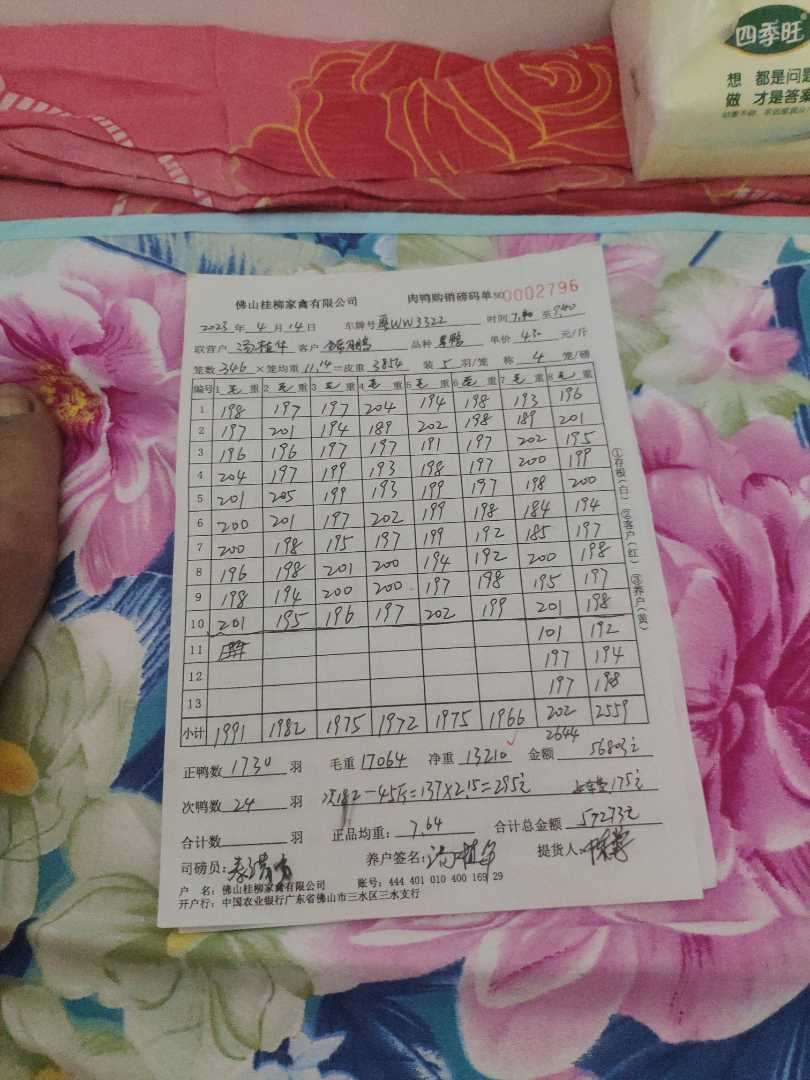 四季旺
想 都是问题
做 才是答案
佛山桂柳家禽有限公司 肉鸭购销磅码单 NO 0002796
2023 年 4 月 14 日 车牌号 WW3322 时间 至
联营户 客户 品种 单价 4.30 元/斤
笼数 346 ×笼均重 11.14 =皮重 3854 装 5 羽/笼 称 4 笼/磅
编号 1 毛 重 2 毛 重 3 毛 重 4 毛 重 5 毛 重 6 毛 重 7 毛 重 8 毛 重
1 198 197 197 204 194 198 193 196
2 197 201 194 189 202 198 189 201
3 196 196 197 197 191 197 202 195
4 204 197 199 193 198 197 200 199
5 201 205 199 193 199 197 198 200
6 200 201 197 202 199 198 184 194
7 200 198 195 197 199 192 185 197
8 196 198 201 200 194 192 200 198
9 198 194 200 200 197 198 195 197
10 201 195 196 197 202 199 201 198
11 101 192
12 197 194
13 197 198
小计 1991 1982 1975 1972 1975 1966 202 2559
2644
①存根(白) ②客户(红) ③养户(黄)
正鸭数 1730 羽 毛重 17064 净重 13210 金额 56803
次鸭数 24 羽 次182-45斤=137×2.15=295 175
合计数 羽 正品均重: 7.64 合计总金额 57273
司磅员: 养户签名: 提货人:
户 名: 佛山桂柳家禽有限公司 账号: 444 401 010 400 169 29
开户行: 中国农业银行广东省佛山市三水区三水支行